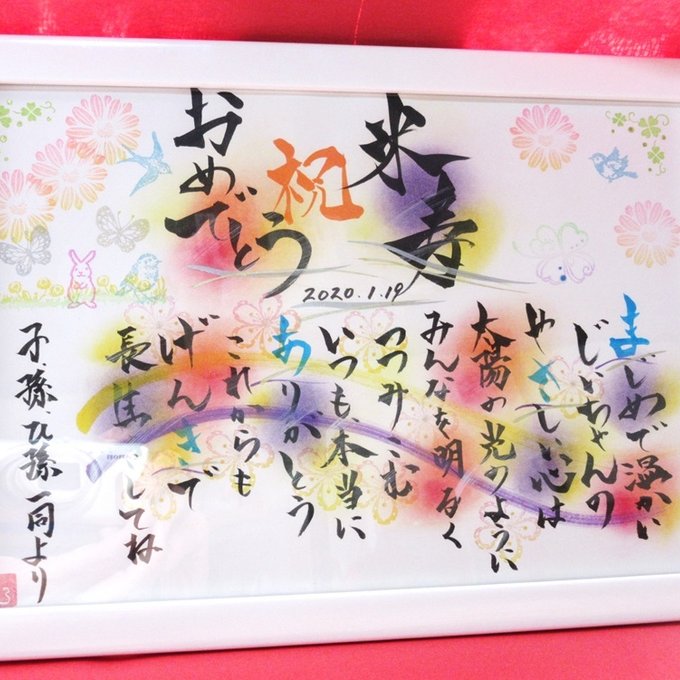 米寿
祝
おめでとう
2020.1.19
まじめで温かい
じいちゃんの
やさしい心は
太陽の光のように
みんなを明るく
つつみこむ
いつも、本当に
ありがとう
これからも
げんきで
長生きしてね
子、孫、ひ孫一同より